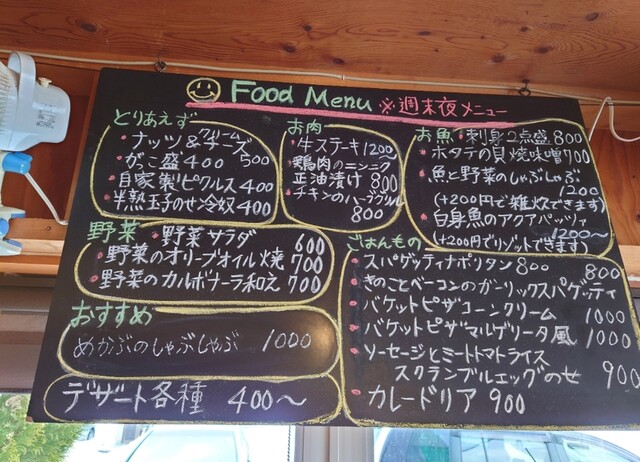 Food Menu ※週末夜メニュー
とりあえず
・ナッツ&クリームチーズ 500
・がっこ盛 400
・自家製ピクルス 400
・半熟玉子のせ冷奴 400
お肉
・牛ステーキ 1200
・鶏肉のニンニク
正油漬け 800
・チキンのハーブグリル
800
お魚
・刺身2点盛 800
・ホタテの貝焼味噌 700
・魚と野菜のしゃぶしゃぶ
1200
(+200円で雑炊できます)
・白身魚のアクアパッツァ
1200〜
(+200円でリゾットできます)
野菜
・野菜サラダ 600
・野菜のオリーブオイル焼 700
・野菜のカルボナーラ和え 700
おすすめ
めかぶのしゃぶしゃぶ 1000
デザート各種 400〜
ごはんもの
・スパゲッティナポリタン 800
・きのことベーコンのガーリックスパゲッティ 800
・バケットピザコーンクリーム 1000
・バケットピザマルゲリータ風 1000
・ソーセージとミートトマトライス
スクランブルエッグのせ 900
・カレードリア 900